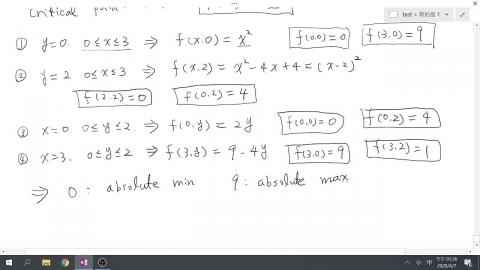 critical point
test > 新的屆 1
① y=0. 0≤x≤3 ⇒ f(x.0)=x² f(0.0)=0 f(3.0)=9
② y=2 0≤x≤3 ⇒ f(x.2)=x²-4x+4=(x-2)²
f(2.2)=0 f(0.2)=4
③ x=0. 0≤y≤2 ⇒ f(0.y)=2y f(0.0)=0 f(0.2)=4
④ x=3. 0≤y≤2 ⇒ f(3.y)=9-4y f(3.0)=9 f(3.2)=1
⇒ 0: absolute min 9: absolute max
中
下午 01:26
2020/4/7